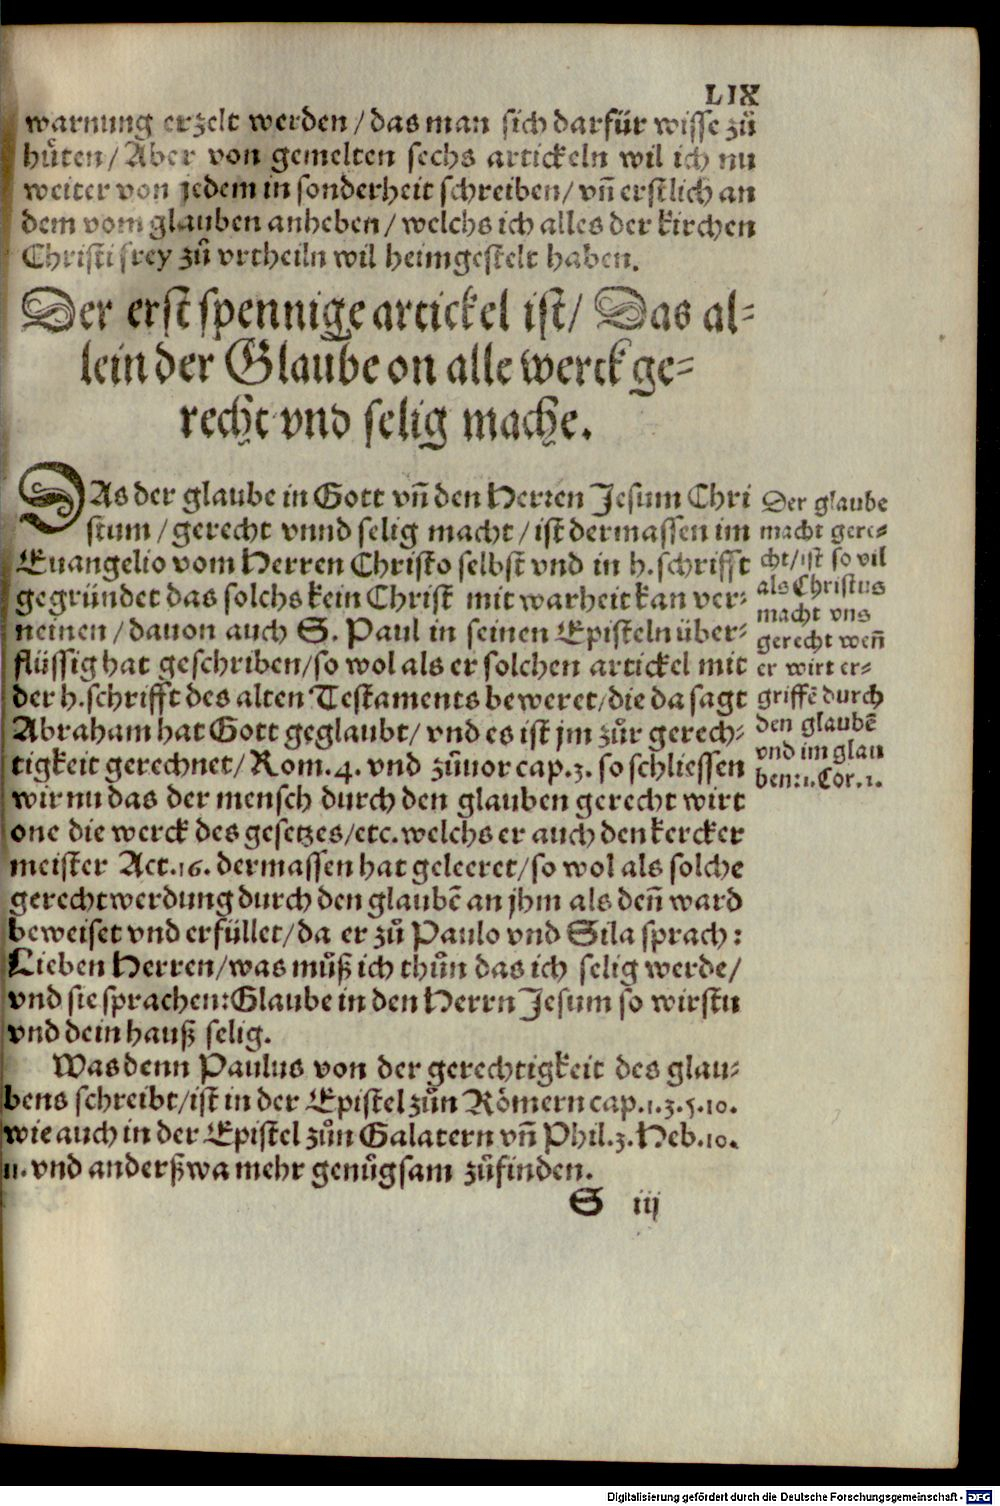 LIX
warnung erzelt werden / das man sich darfür wisse zů
hůten / Aber von gemelten sechs artickeln wil ich nu
weiter von jedem in sonderheit schreiben / vn̄ erstlich an
dem vom glauben anheben / welchs ich alles der kirchen
Christi frey zů vrtheiln wil heimgestelt haben.
Der erst spennige artickel ist / Das al⸗
lein der Glaube on alle werck ge⸗
recht vnd selig mache.
DAs der glaube in Gott vn̄ den Herren Jesum Chri
stum / gerecht vnnd selig macht / ist dermassen im
Euangelio vom Herren Christo selbst vnd in h. schrifft
gegründet das solchs kein Christ mit warheit kan ver⸗
neinen / dauon auch S. Paul in seinen Episteln über⸗
flüssig hat geschriben / so wol als er solchen artickel mit
der h. schrifft des alten Testaments beweret / die da sagt
Abraham hat Gott geglaubt / vnd es ist jm zůr gerech⸗
tigkeit gerechnet / Rom. 4. vnd zůuor cap. 3. so schliessen
wir nu das der mensch durch den glauben gerecht wirt
one die werck des gesetzes / etc. welchs er auch den kercker
meister Act. 16. dermassen hat geleeret / so wol als solche
gerechtwerdung durch den glaubē an jhm als den̄ ward
beweiset vnd erfüllet / da er zů Paulo vnd Sila sprach :
Lieben Herren / was můß ich thůn das ich selig werde /
vnd sie sprachen: Glaube in den Herrn Jesum so wirstu
vnd dein hauß selig.
Was denn Paulus von der gerechtigkeit des glau⸗
bens schreibt / ist in der Epistel zůn Römern cap. 1. 3. 5. 10.
wie auch in der Epistel zůn Galatern vn̄ Phil. 3. Heb. 10.
11. vnd anderßwa mehr genůgsam zůfinden.
S iij
Der glaube
macht gere⸗
cht / ist so vil
als Christus
macht vns
gerecht wen̄
er wirt er⸗
griffē durch
den glaubē
vnd im glau
ben: 1. Cor. 1.
Digitalisierung gefördert durch die Deutsche Forschungsgemeinschaft - DFG